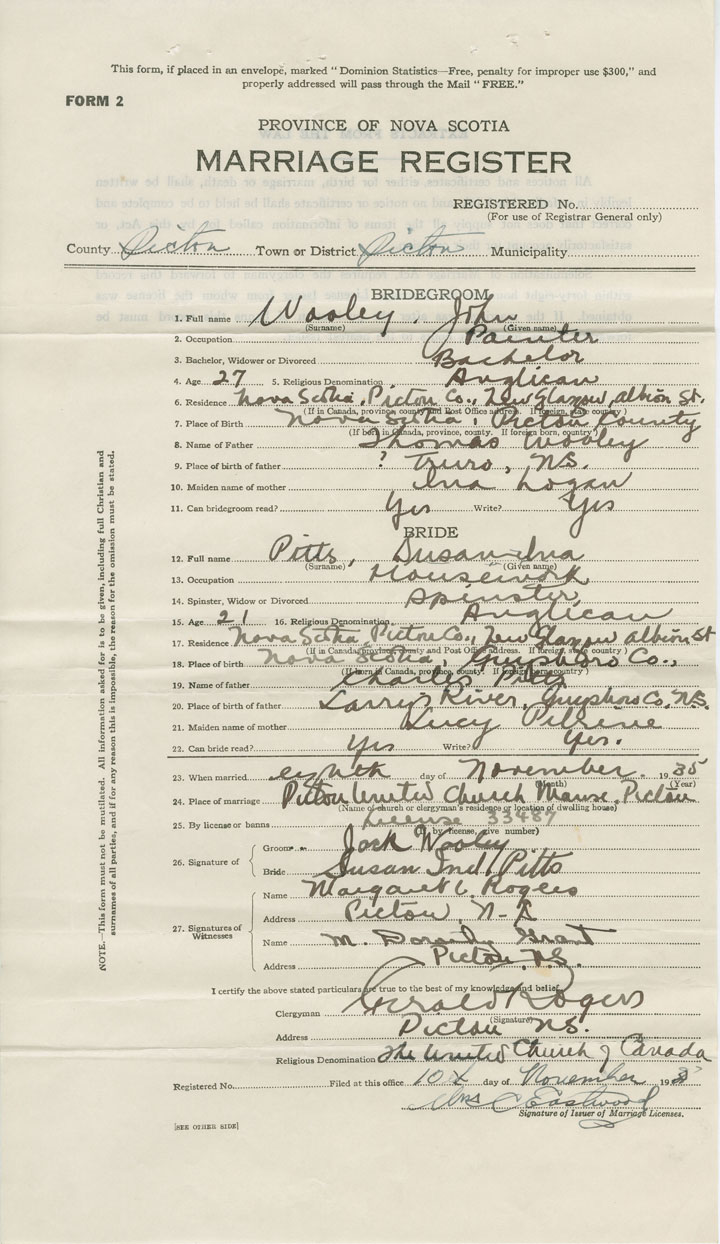 This form, if placed in an envelope, marked "Dominion Statistics—Free, penalty for improper use $300," and
properly addressed will pass through the Mail "FREE."
FORM 2
PROVINCE OF NOVA SCOTIA
MARRIAGE REGISTER
REGISTERED No.
(For use of Registrar General only)
County Pictou Town or District Pictou Municipality
BRIDEGROOM
1. Full name Wooley, John
(Surname) (Given name)
2. Occupation Painter
3. Bachelor, Widower or Divorced Bachelor
4. Age 27 5. Religious Denomination Anglican
6. Residence Nova Scotia, Pictou Co., New Glasgow, albion St.
(If in Canada, province, county and Post Office address. If foreign, state country)
7. Place of Birth Nova Scotia, Pictou County
(If born in Canada, province, county. If foreign born, country)
8. Name of Father Thomas Wooley
9. Place of birth of father ? Truro, N.S.
10. Maiden name of mother Ina Logan
11. Can bridegroom read? Yes Write? Yes
BRIDE
12. Full name Pitts, Susan Ina
(Surname) (Given name)
13. Occupation Housework
14. Spinster, Widow or Divorced Spinster
15. Age 21 16. Religious Denomination Anglican
17. Residence Nova Scotia Pictou Co., New Glasgow albion St
(If in Canada, province, county and Post Office address. If foreign, state country)
18. Place of birth Nova Scotia, Guysboro Co.,
(If born in Canada, province, county. If foreign born country)
19. Name of father Charles Pitts
20. Place of birth of father Larry's River, Guysboro Co. N.S.
21. Maiden name of mother Lucy
22. Can bride read? Yes Write? Yes.
23. When married eighth day of November 1935
(Month) (Year)
24. Place of marriage Pictou United Church Manse, Pictou
(Name of church or clergyman's residence or location of dwelling house)
25. By license or banns License 33487
(If by license, give number)
26. Signature of
Groom Jack Wooley
Bride Susan Pitts
27. Signatures of Witnesses
Name Margaret C. Rogers
Address Pictou, N.S.
Name M. Dorothy Grant
Address Pictou, N.S.
I certify the above stated particulars are true to the best of my knowledge and belief.
Clergyman Gerald Rogers
(Signature)
Address Pictou N.S.
Religious Denomination The United Church of Canada
Registered No. Filed at this office 10th day of November 193
Mrs C Eastwood
Signature of Issuer of Marriage Licenses.
[SEE OTHER SIDE]
NOTE.—This form must not be mutilated. All information asked for is to be given, including full Christian and
surnames of all parties, and if for any reason this is impossible, the reason for the omission must be stated.